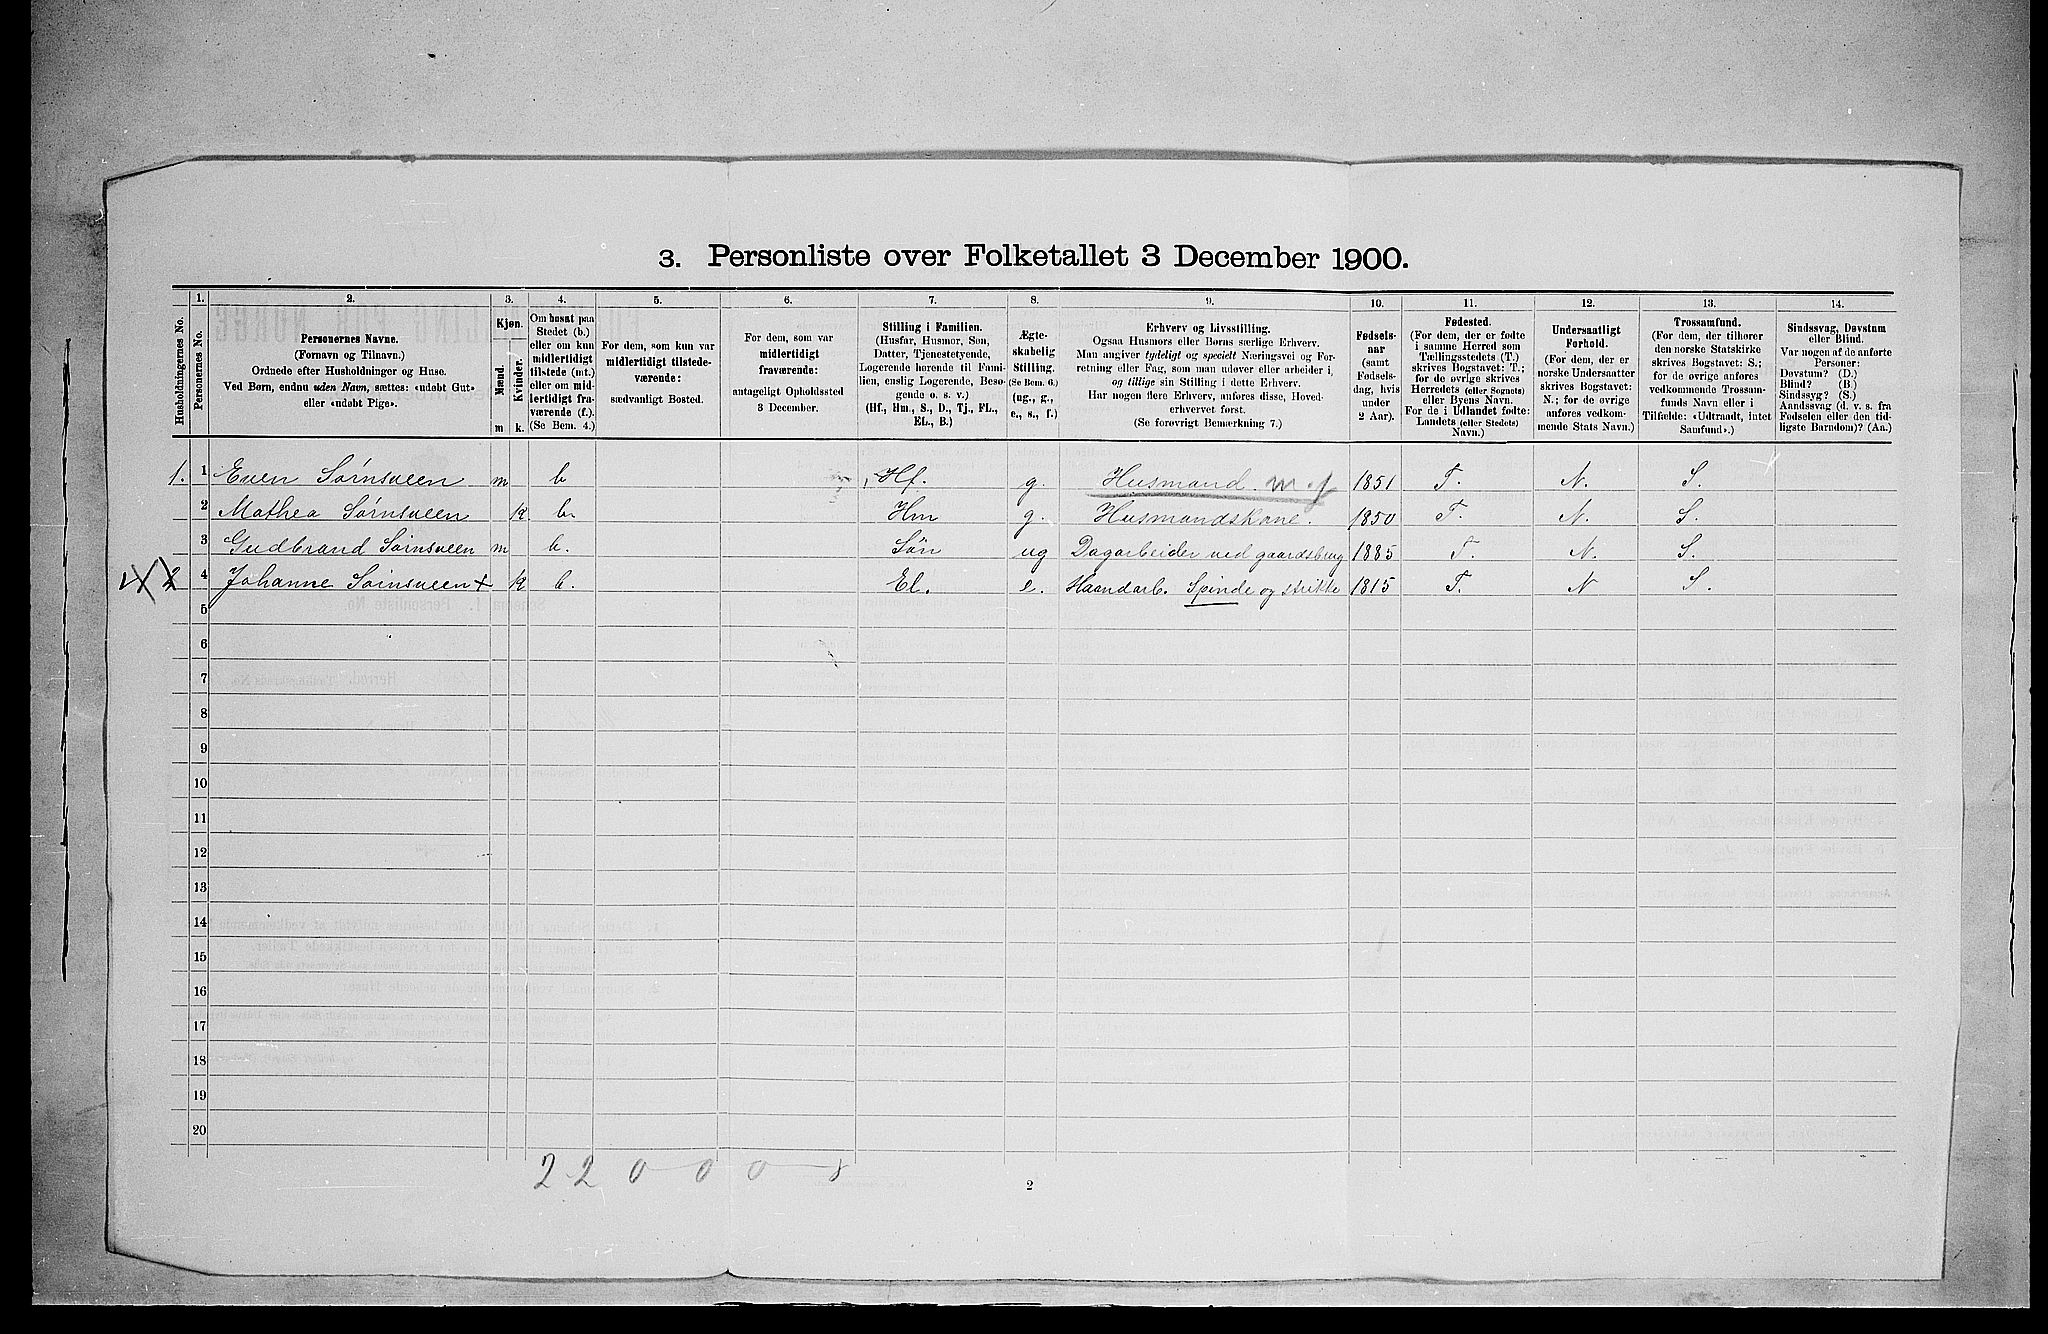 3. Personliste over Folketallet 3 December 1900.
Husholdningernes No.
1.
Personernes No.
2.
Personernes Navne.
(Fornavn og Tilnavn.)
Ordnede efter Husholdninger og Huse.
Ved Børn, endnu uden Navn, sættes: «udøbt Gut»
eller «udøbt Pige».
3.
Kjøn.
Mænd.
Kvinder.
m k.
4.
Om bosat paa
Stedet (b.)
eller om kun
midlertidigt
tilstede (mt.)
eller om mid-
lertidigt fra-
værende (f.).
(Se Bem. 4.)
5.
For dem, som kun var
midlertidigt tilstede-
værende:
sædvanligt Bosted.
6.
For dem, som var
midlertidigt
fraværende:
antageligt Opholdssted
3 December.
7.
Stilling i Familien.
(Husfar, Husmor, Søn,
Datter, Tjenestetyende,
Logerende hørende til Fami-
lien, enslig Logerende, Besø-
gende o. s. v.)
(Hf., Hm., S., D., Tj., FL.,
EL., B.)
8.
Ægte-
skabelig
Stilling.
(Se Bem. 6.)
(ug., g.,
e., s., f.)
9.
Erhverv og Livsstilling.
Ogsaa Husmors eller Børns særlige Erhverv.
Man angiver tydeligt og specielt Næringsvei og For-
retning eller Fag, som man udøver eller arbeider i,
og tillige sin Stilling i dette Erhverv.
Har nogen flere Erhverv, anføres disse, Hoved-
erhvervet først.
(Se forøvrigt Bemærkning 7.)
10.
Fødsels-
aar
(samt
Fødsels-
dag, hvis
under
2 Aar).
11.
Fødested.
(For dem, der er fødte
i samme Herred som
Tællingsstedets (T.)
skrives Bogstavet: T.;
for de øvrige skrives
Herredets (eller Sognets)
eller Byens Navn.
For de i Udlandet fødte:
Landets (eller Stedets)
Navn.)
12.
Undersaatligt
Forhold.
(For dem, der er
norske Undersaatter
skrives Bogstavet:
N.; for de øvrige
anføres vedkom-
mende Stats Navn.)
13.
Trossamfund.
(For dem, der tilhører
den norske Statskirke
skrives Bogstavet: S.;
for de øvrige anføres
vedkommende Trossam-
funds Navn eller i
Tilfælde: «Udtraadt, intet
Samfund».)
14.
Sindssvag, Døvstum
eller Blind.
Var nogen af de anførte
Personer:
Døvstum? (D.)
Blind? (B.)
Sindssyg? (S.)
Aandssvag (d. v. s. fra
Fødselen eller den tid-
ligste Barndom)? (Aa.)
1. 1 Even Sørnsveen m b Hf. g. Husmand. m. j 1851 T. N. S.
2 Mathea Sørnsveen k b. Hm g. Husmandskone. 1850 T. N. S.
3 Gudbrand Sørnsveen m b. Søn ug Dagarbeider ved gaardsbrug 1885 T. N. S.
2 4 Johanne Sørnsveen + k b. El. e. Haandarb. Spinde og strikke 1815 T. N S.
5
6
7
8
9
10
11
12
13
14
15
16
17
18
19
20
2 2 0 0 0
2